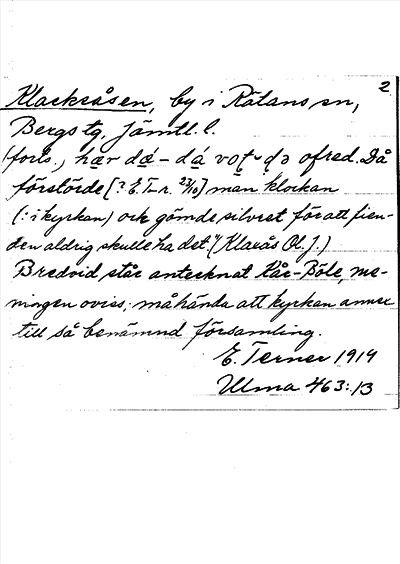 2
Klacksåsen, by i Rätans sn,
Bergs tg, Jämtl. l.
(forts., hær dǽ – dá vo̤t ofred. Då
förstörde [? E. T–r. 27/10] man klockan
(: i kyrkan) och gömde silvret för att fien-
den aldrig skulle ha det." (Klaxås Ol. J.)
Bredvid står antecknat Kår-Böle, me-
ningen oviss; måhända att kyrkan annex
till så benämnd församling.
E. Terner 1919
Ulma 463:13